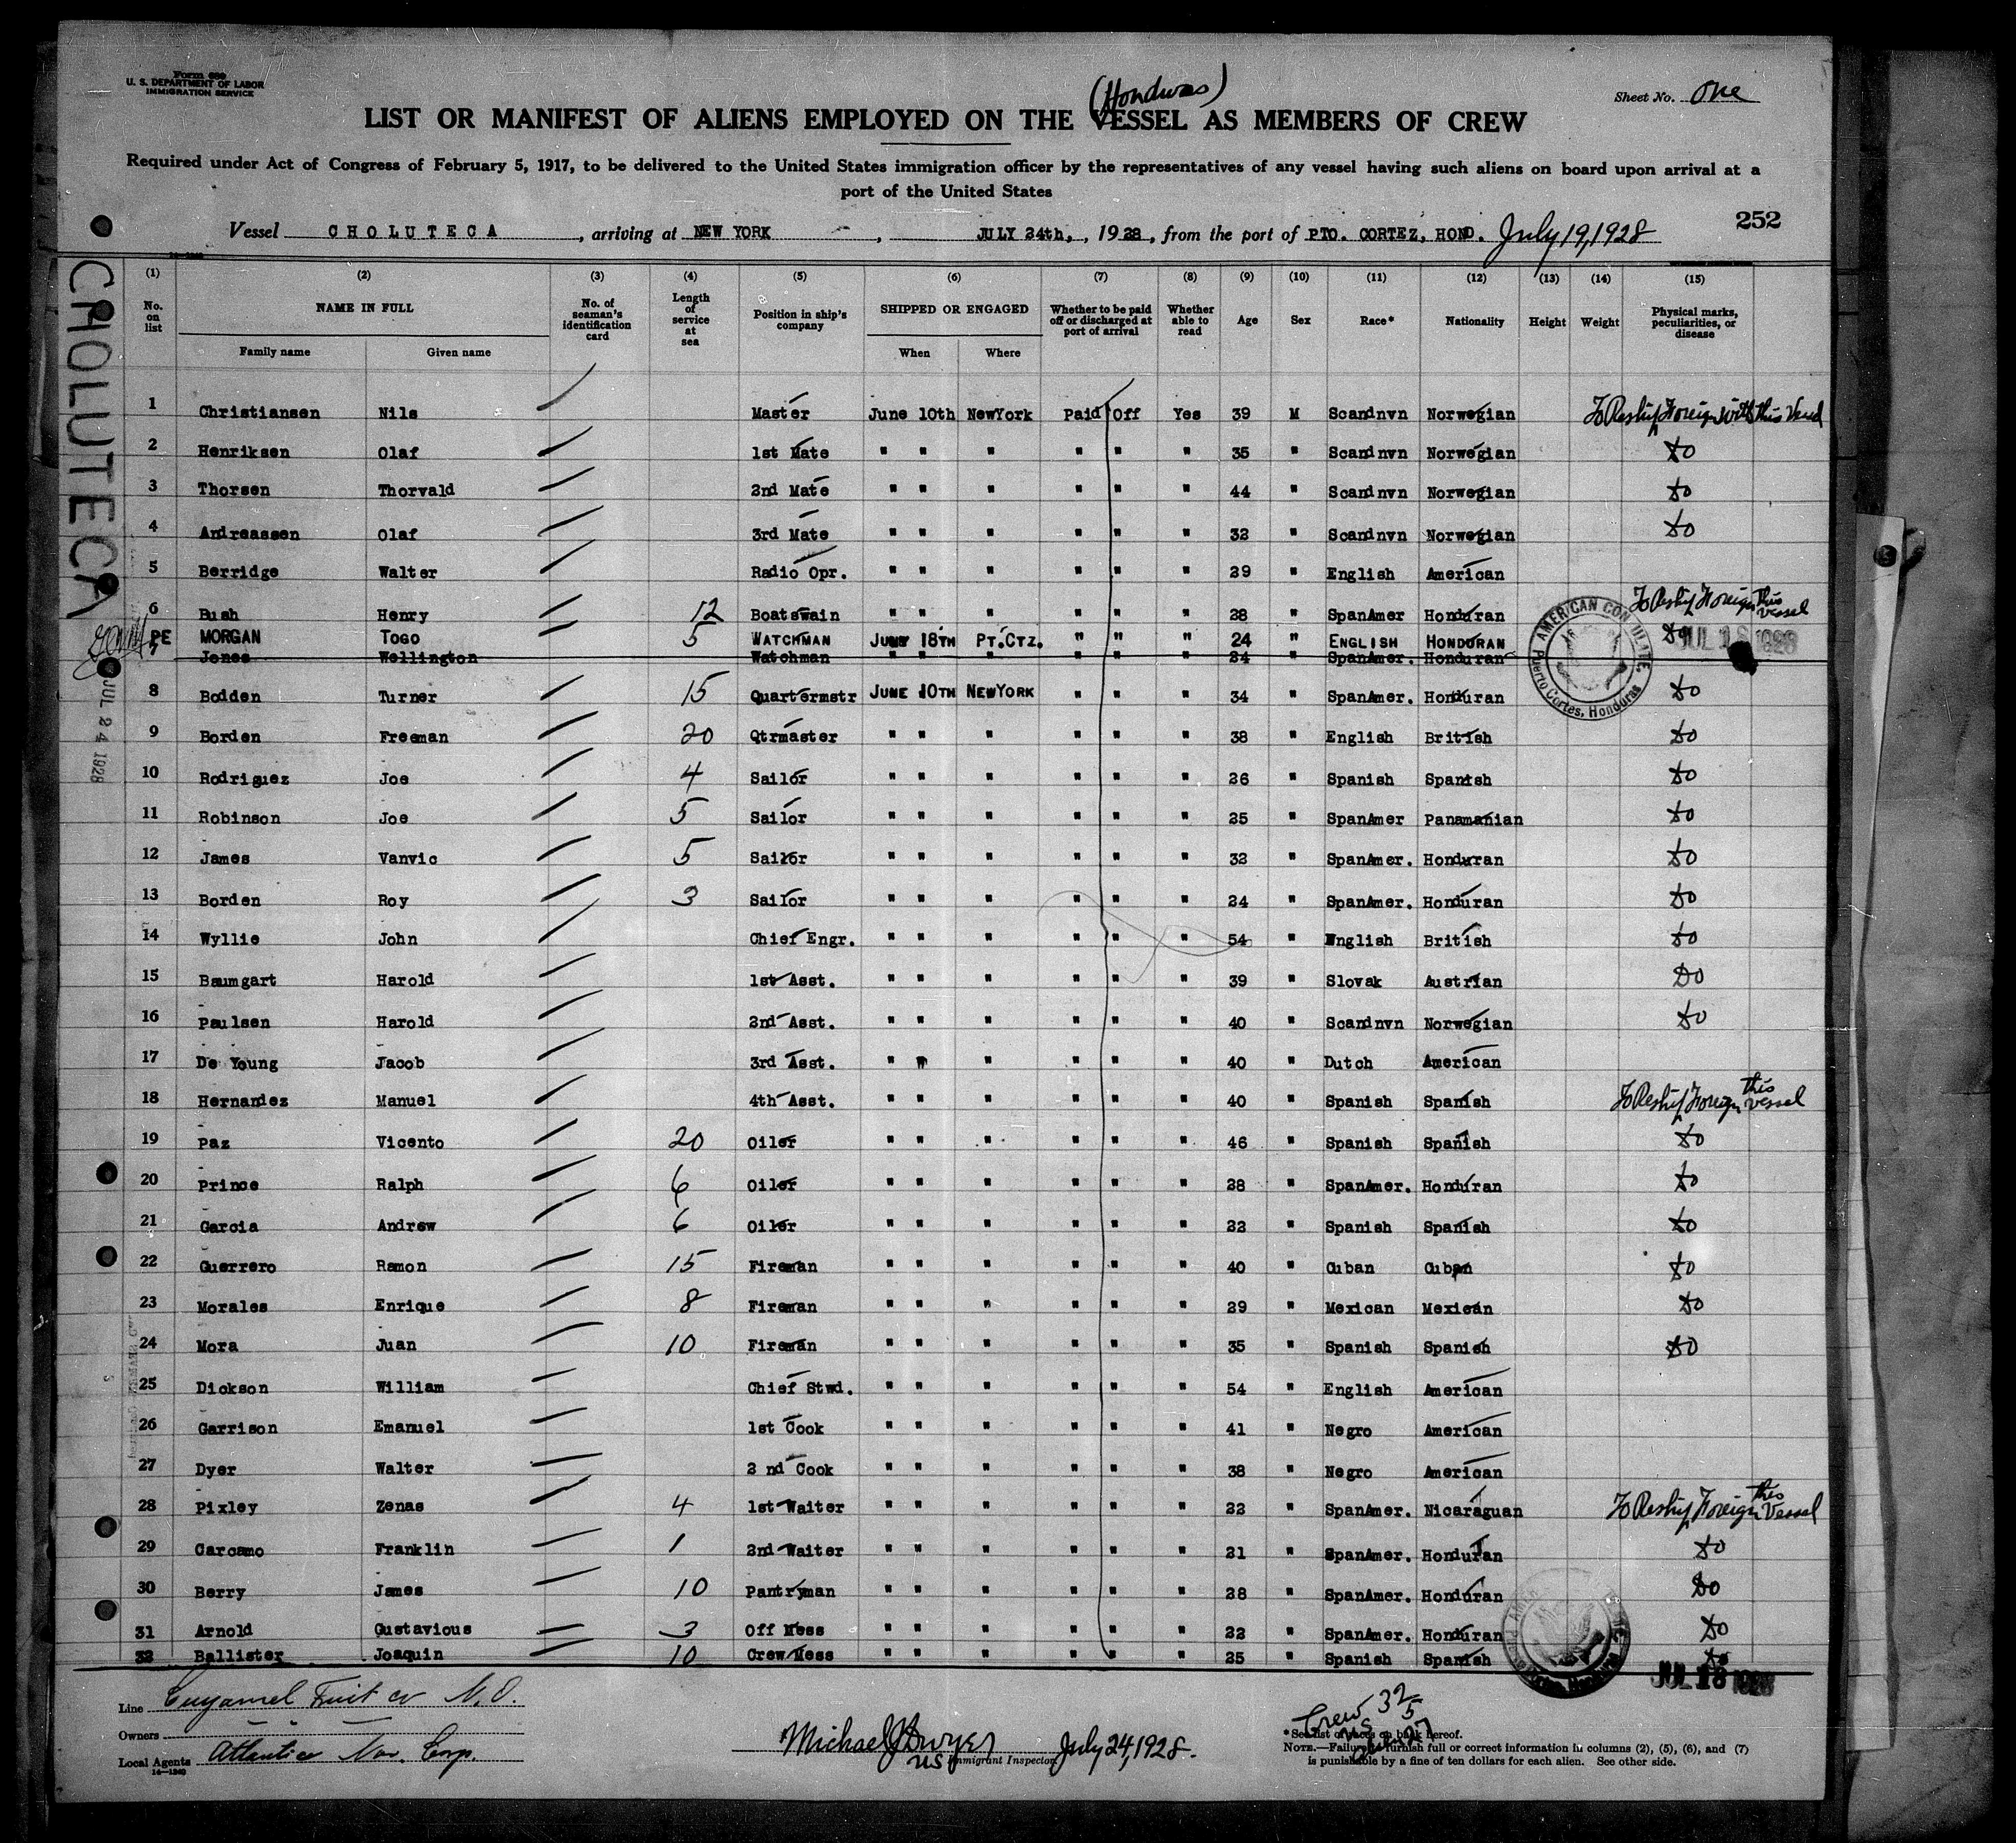 Form 689
U. S. DEPARTMENT OF LABOR
IMMIGRATION SERVICE
(Honduras)
Sheet No. One
LIST OR MANIFEST OF ALIENS EMPLOYED ON THE VESSEL AS MEMBERS OF CREW
Required under Act of Congress of February 5, 1917, to be delivered to the United States immigration officer by the representatives of any vessel having such aliens on board upon arrival at a
port of the United States
252
Vessel CHOLUTECA, arriving at NEW YORK, JULY 24th, , 1928, from the port of PTO. CORTEZ, HOND. July 19, 1928
CHOLUTECA
JUL 24 1928
(1) (2) (3) (4) (5) (6) (7) (8) (9) (10) (11) (12) (13) (14) (15)
No. on list NAME IN FULL Family name Given name No. of seaman's identification card Length of service at sea Position in ship's company SHIPPED OR ENGAGED When Where Whether to be paid off or discharged at port of arrival Whether able to read Age Sex Race* Nationality Height Weight Physical marks, peculiarities, or disease
1 Christiansen Nils Master June 10th NewYork Paid Off Yes 39 M Scandnvn Norwegian To Reship Foreign with this Vessel
2 Henriksen Olaf 1st Mate " " " " " " 35 " Scandnvn Norwegian do
3 Thorsen Thorvald 2nd Mate " " " " " " 44 " Scandnvn Norwegian do
4 Andreassen Olaf 3rd Mate " " " " " " 32 " Scandnvn Norwegian do
5 Berridge Walter Radio Opr. " " " " " " 29 " English American
6 Bush Henry 12 Boatswain " " " " " " 28 " SpanAmer Honduran To Reship Foreign this Vessel
PE MORGAN TOGO 5 WATCHMAN JUNY 18TH PT.CTZ. " " " 24 " ENGLISH HONDURAN do
JUL 18 1928
7 Jones Wellington Watchman " " " " " " 24 " SpanAmer. Honduran
AMERICAN CONSULATE, Puerto Cortes, Honduras
8 Bodden Turner 15 Quartermstr JUNE 10TH NEWYORK " " " 34 " SpanAmer. Honduran do
9 Borden Freeman 20 Qtrmaster " " " " " " 38 " English British do
10 Rodriguez Joe 4 Sailor " " " " " " 26 " Spanish Spanish do
11 Robinson Joe 5 Sailor " " " " " " 25 " SpanAmer Panamanian do
12 James Vanvic 5 Sailor " " " " " " 32 " SpanAmer. Honduran do
13 Borden Roy 3 Sailor " " " " " " 24 " SpanAmer. Honduran do
14 Wyllie John Chief Engr. " " " " " " 54 " English British do
15 Baumgart Harold 1st Asst. " " " " " " 39 " Slovak Austrian Do
16 Paulsen Harold 2nd Asst. " " " " " " 40 " Scandnvn Norwegian do
17 De Young Jacob 3rd Asst. " " " " " " 40 " Dutch American
18 Hernandez Manuel 4th Asst. " " " " " " 40 " Spanish Spanish To Reship Foreign this Vessel
19 Paz Vicento 20 Oiler " " " " " " 46 " Spanish Spanish do
20 Prince Ralph 6 Oiler " " " " " " 28 " SpanAmer. Honduran do
21 Garcia Andrew 6 Oiler " " " " " " 22 " Spanish Spanish do
22 Guerrero Ramon 15 Fireman " " " " " " 40 " Cuban Cuban do
23 Morales Enrique 8 Fireman " " " " " " 29 " Mexican Mexican do
24 Mora Juan 10 Fireman " " " " " " 35 " Spanish Spanish do
25 Dickson William Chief Stwd. " " " " " " 54 " English American
26 Garrison Emanuel 1st Cook " " " " " " 41 " Negro American
27 Dyer Walter 2 nd Cook " " " " " " 38 " Negro American
28 Pixley Zenas 4 1st Waiter " " " " " " 22 " SpanAmer. Nicaraguan To Reship Foreign this Vessel
29 Carcamo Franklin 1 2nd Waiter " " " " " " 21 " SpanAmer. Honduran do
30 Berry James 10 Pantryman " " " " " " 28 " SpanAmer. Honduran do
31 Arnold Gustavious 3 Off Mess " " " " " " 22 " SpanAmer. Honduran do
32 Ballister Joaquin 10 Crew Mess " " " " " " 25 " Spanish Spanish do
JUL 18 1928
Line Cuyamel Fruit Co N.O.
Owners " " "
Local Agents Atlantic Nav. Corp.
14—1240
Michael J Dwyer July 24, 1928.
US Immigrant Inspector
Crew 32
US 5
27
* See list of races on back hereof.
NOTE.—Failure to furnish full or correct information in columns (2), (5), (6), and (7)
is punishable by a fine of ten dollars for each alien. See other side.